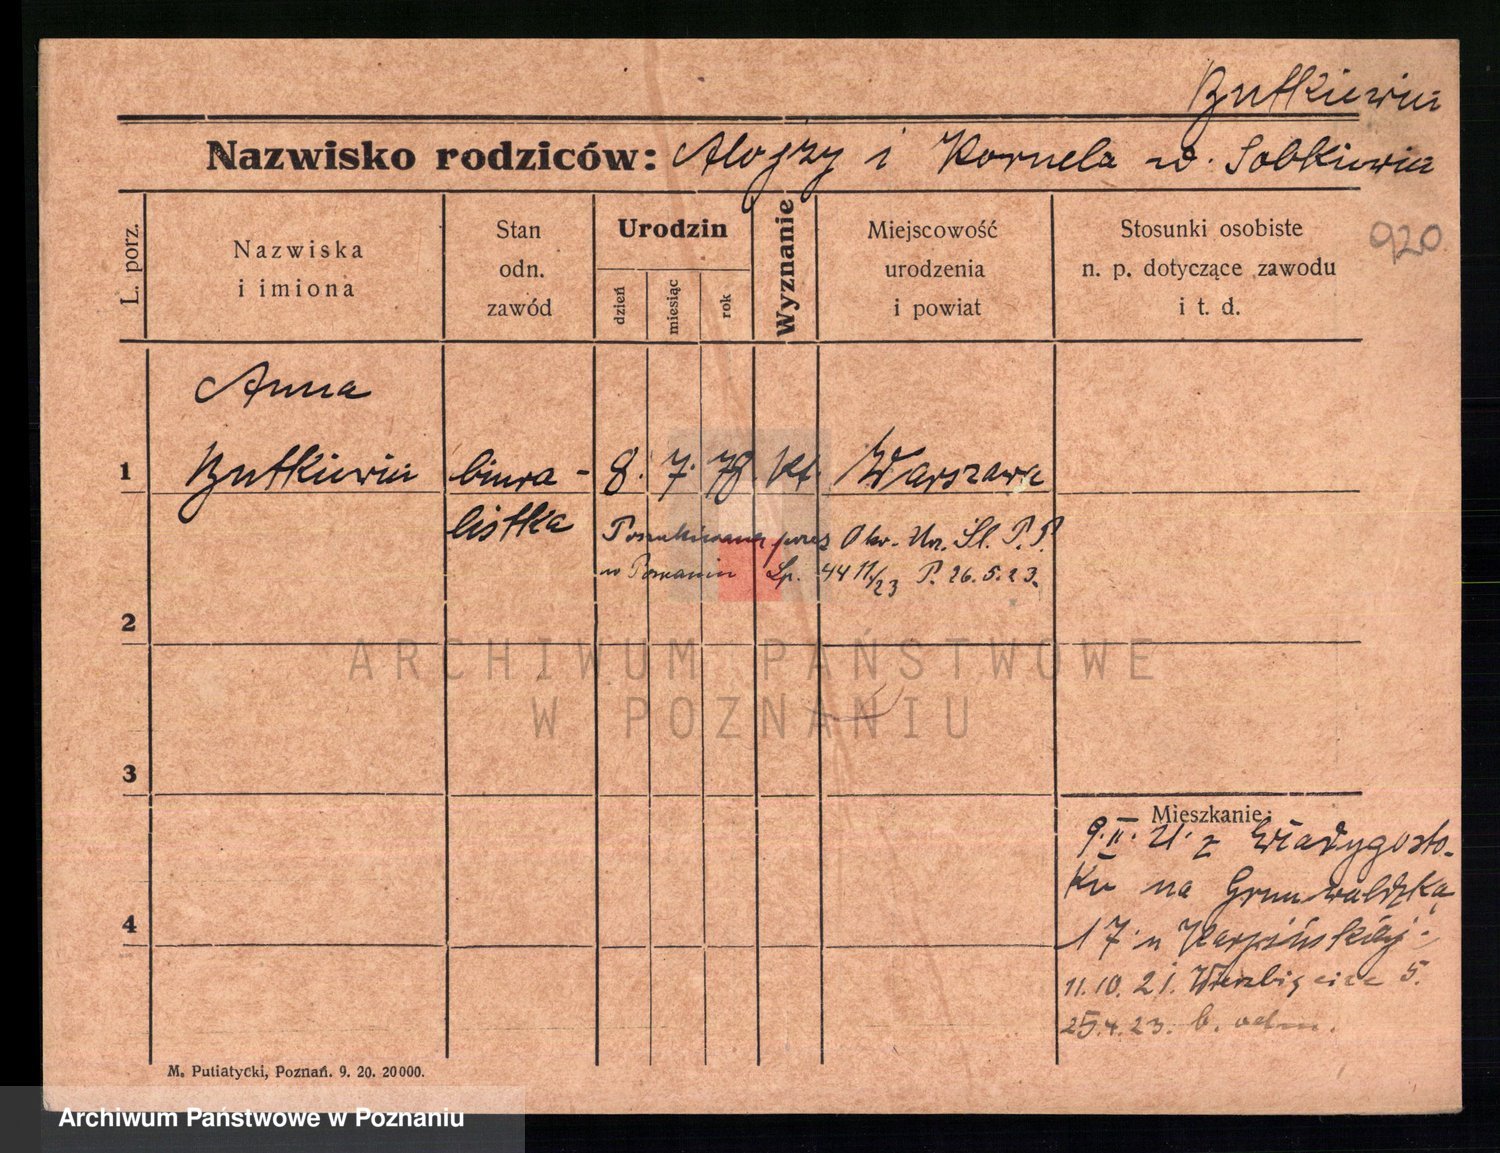 Butkiewicz
Nazwisko rodziców: Alojzy i Kornela w. Sobkiewicz
920
L. porz.
Nazwiska
i imiona
Stan
odn.
zawód
Urodzin
dzień
miesiąc
rok
Wyznanie
Miejscowość
urodzenia
i powiat
Stosunki osobiste
n. p. dotyczące zawodu
i t. d.
Anna
1 Butkiewicz biura- 8. 7. 78. kt. Warszawa
listka
Poszukiwana przez Okr. Urz. Śl. P. P.
w Poznaniu Lp. 4411/23 P. 26.5.23.
2
3
4
Mieszkanie:
9.II.21. z Władygosto-
ku na Grunwaldzką
17. u Karpińskiej.
11.10.21. Wierzbięcice 5.
25.4.23. b. odm.
M. Putiatycki, Poznań. 9. 20. 20000.
ARCHIWUM PAŃSTWOWE
W POZNANIU
Archiwum Państwowe w Poznaniu